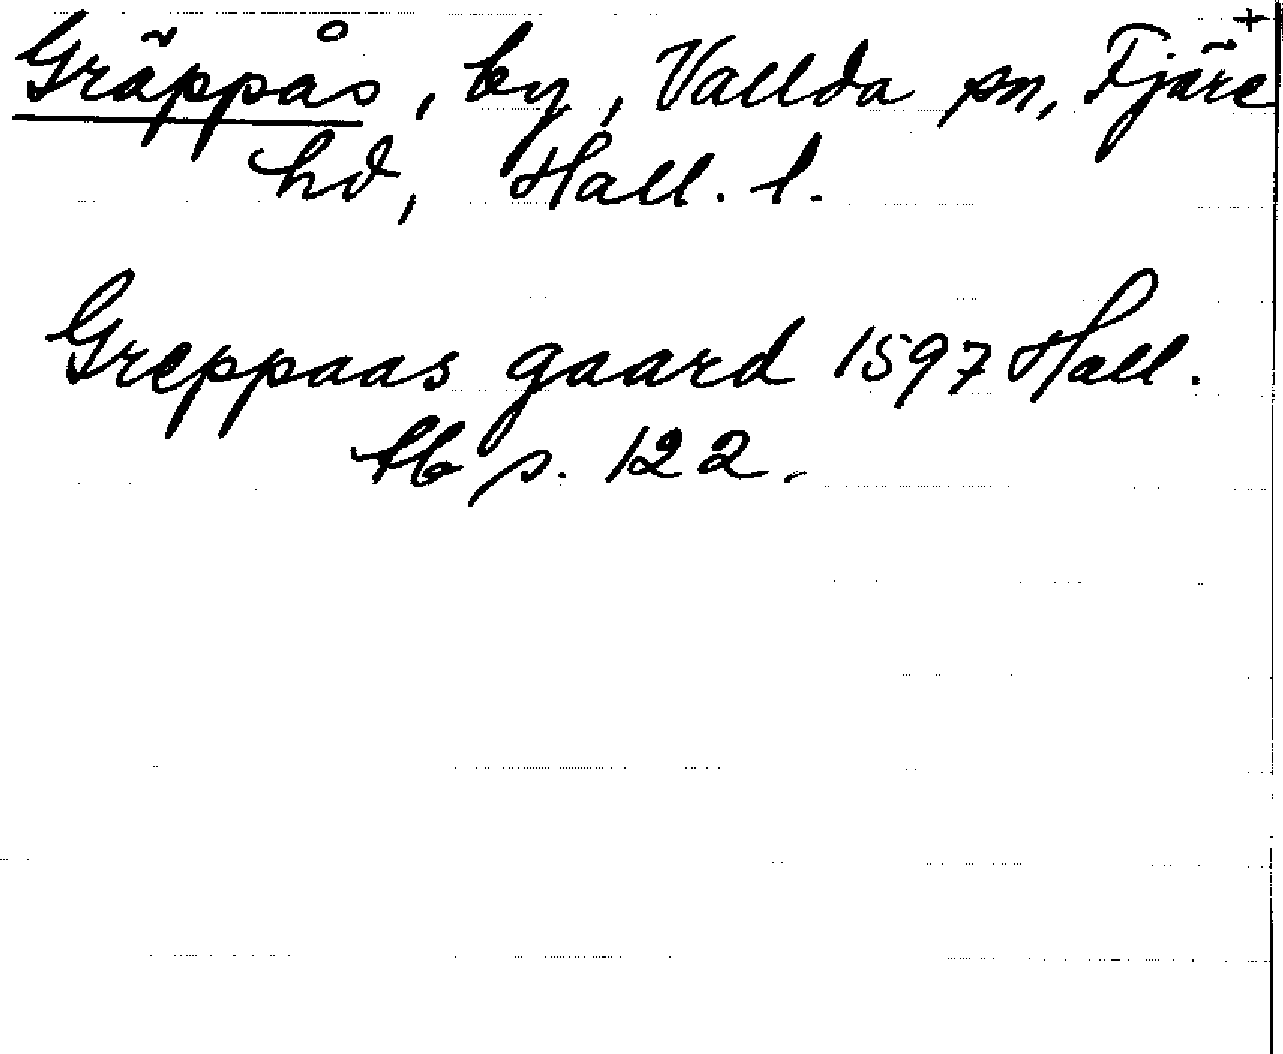 +
Gräppås, by, Vallda sn, Fjäre
hd, Hall. l.
Greppaas gaard 1597 Hall.
lb s. 122.